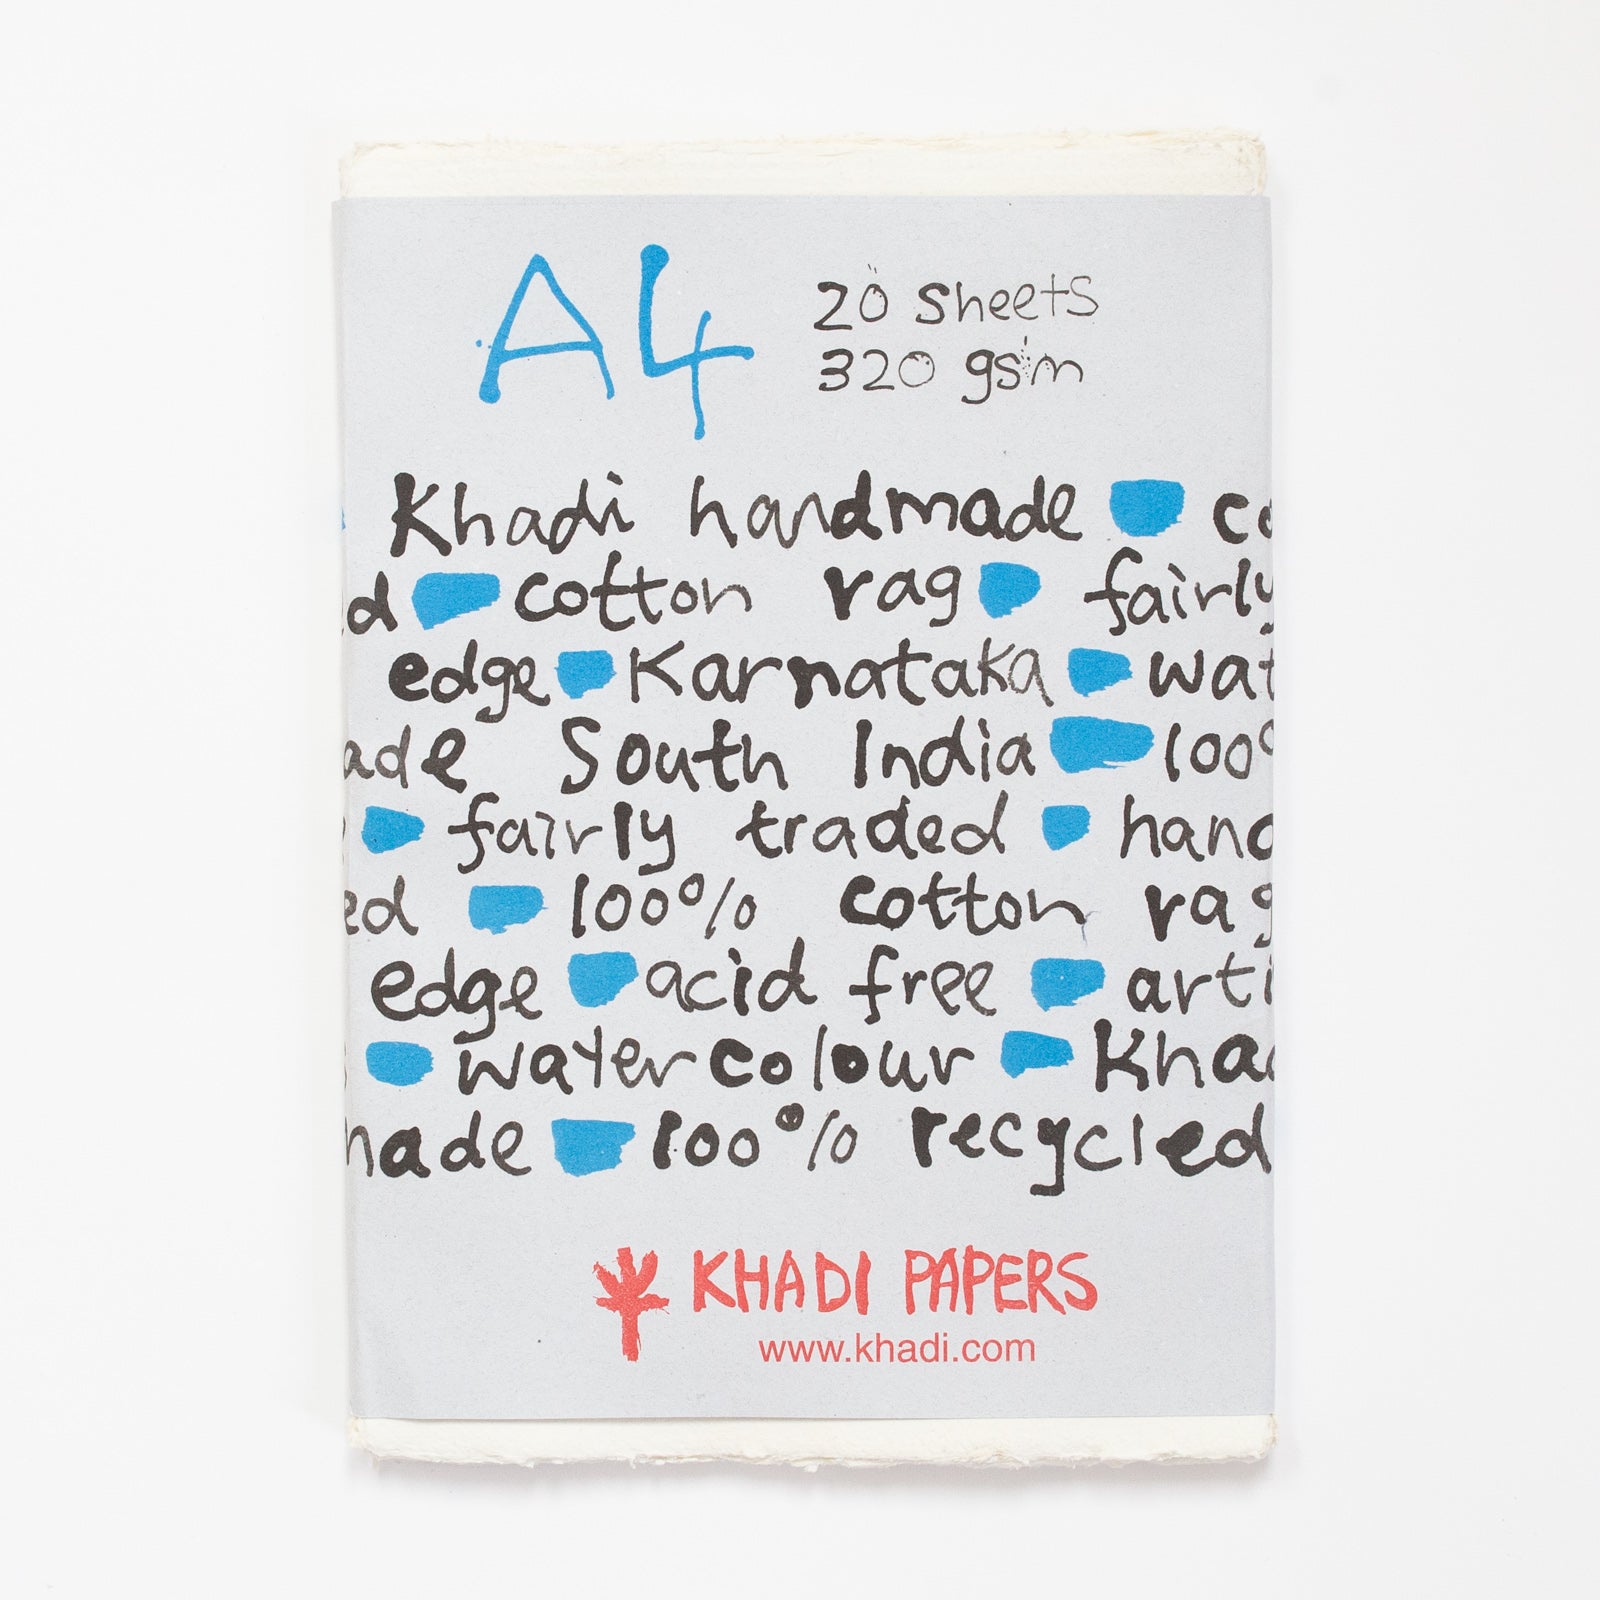 A4
20 sheets
320 gsm
Khadi handmade co
d cotton rag fairly
edge Karnataka wat
ade South India 100%
fairly traded hand
ed 100% cotton rag
edge acid free arti
watercolour Khad
made 100% recycled
KHADI PAPERS
www.khadi.com